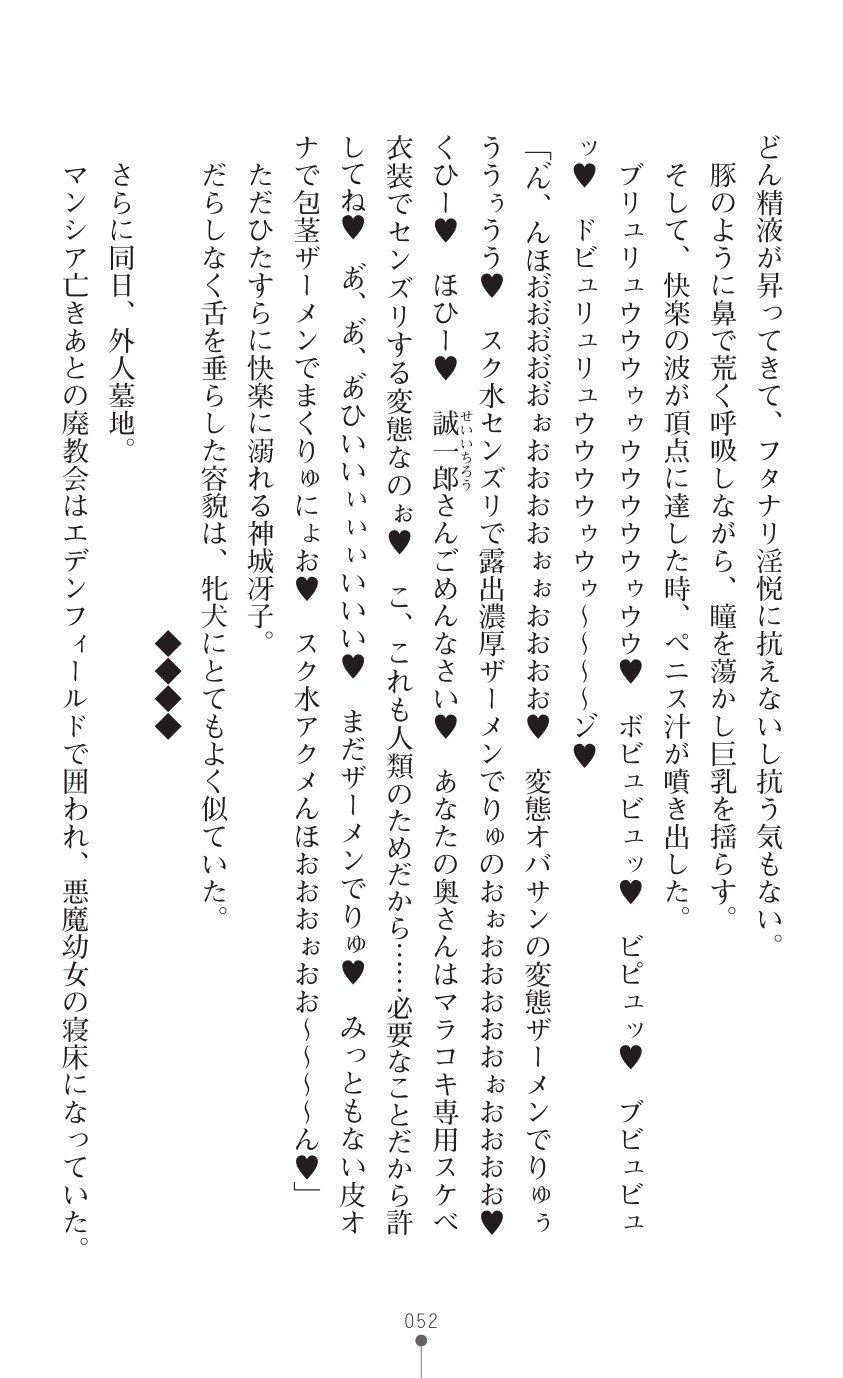 どん精液が昇ってきて、フタナリ淫悦に抗えないし抗う気もない。
豚のように鼻で荒く呼吸しながら、瞳を蕩かし巨乳を揺らす。
そして、快楽の波が頂点に達した時、ペニス汁が噴き出した。
ブリュリュウウウゥゥウウウウウゥウウ♥　ボビュビュッ♥　ビピュッ♥　ブビュビュ
ッ♥　ドビュリュリュウウウウゥウゥ～～～～ゾ♥
「ん゛、んほお゛お゛お゛お゛お゛ぉおおおおぉぉおおおおお♥　変態オバサンの変態ザーメンでりゅぅ
ううぅうう♥　スク水センズリで露出濃厚ザーメンでりゅのおぉおおおおおぉおおおお♥
くひー♥　ほひー♥　誠一郎さんごめんなさい♥　あなたの奥さんはマラコキ専用スケベ
せいいちろう
衣装でセンズリする変態なのぉ♥　こ、これも人類のためだから……必要なことだから許
してね♥　あ゛、あ゛、あ゛ひぃいいぃいぃいいい♥　まだザーメンでりゅ♥　みっともない皮オ
ナで包茎ザーメンでまくりゅにょお♥　スク水アクメんほおおおぉおお～～～～ん♥」
ただひたすらに快楽に溺れる神城冴子。
だらしなく舌を垂らした容貌は、牝犬にとてもよく似ていた。
◆◆◆◆
さらに同日、外人墓地。
マンシア亡きあとの廃教会はエデンフィールドで囲われ、悪魔幼女の寝床になっていた。
052